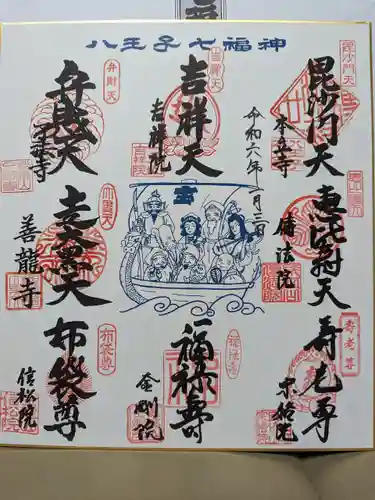 八王子七福神
毘沙門天
本立寺
恵比寿天
傳法院
寿老尊
宗格院
令和六年一月三日
吉祥天
吉祥院
福禄寿
金剛院
弁財天
了法寺
走大黒天
善龍寺
布袋尊
信松院
毘沙門天
吉祥天
弁財天
寿老尊
布袋尊
宝